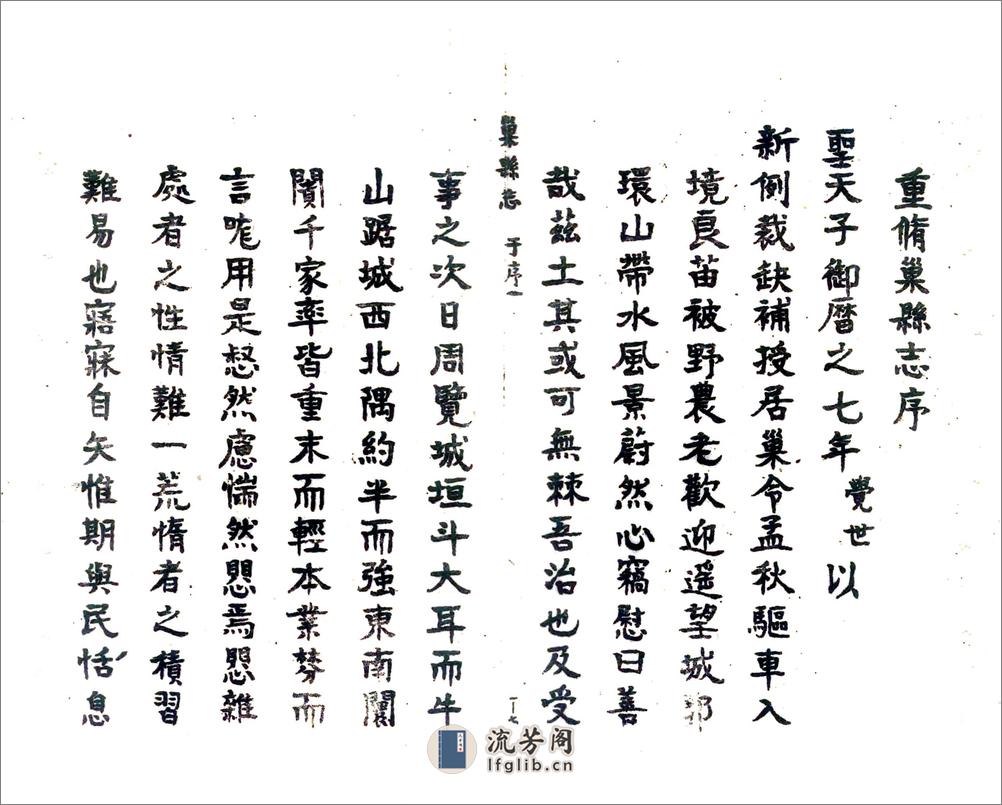 重脩巢縣志序
聖天子御曆之七年覺世以
新例裁缺補授居巢令孟秋驅車入
境良苗被野農老歡迎遥望城郭
環山帶水風景蔚然心竊慰曰善
哉茲土其或可無棘吾治也及受
巢縣志 于序一
一丨七
事之次日周覽城垣斗大耳而牛
山踞城西北隅約半而強東南闤
闠千家率皆重末而輕本業棼而
言咙用是惄然慮惴然思焉思雜
處者之性情難一荒惰者之積習
難易也寤寐自矢惟期與民恬息
流芳阁
lfglib.cn